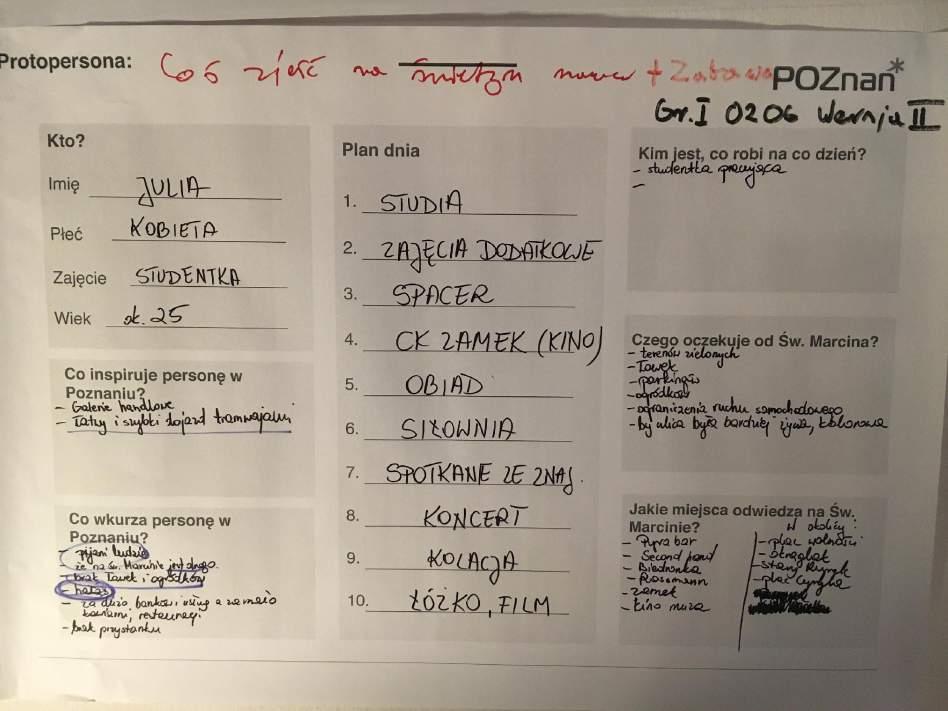 Protopersona: Coś zjeść na świeżym + Zabawa
POZnań*
Gr. I 0206 Wersja II
Kto?
Imię JULIA
Płeć KOBIETA
Zajęcie STUDENTKA
Wiek ok. 25
Co inspiruje personę w
Poznaniu?
- Galerie handlowe
- Łatwy i szybki dojazd tramwajami
Co wkurza personę w
Poznaniu?
- pijani ludzie
że na św. Marcinie jest drogo
- brak ławek i ogródków
- hałas
- za dużo banków i usług a za mało
kawiarni, restauracji
- brak przystanku
Plan dnia
1. STUDIA
2. ZAJĘCIA DODATKOWE
3. SPACER
4. CK ZAMEK (KINO)
5. OBIAD
6. SIŁOWNIA
7. SPOTKANE ZE ZNAJ.
8. KONCERT
9. KOLACJA
10. ŁÓŻKO, FILM
Kim jest, co robi na co dzień?
- studentka pracująca
-
Czego oczekuje od Św. Marcina?
- terenów zielonych
- ławek
- parkingów
- ogródków
- ograniczenia ruchu samochodowego
- by ulica była bardziej żywa, kolorowa
Jakie miejsca odwiedza na Św.
Marcinie?
- Pyra bar
- Second hand
- Biedronka
- Rossmann
- zamek
- kino muza
W okolicy:
- plac wolności
- okrąglak
- stary Rynek
- plac cyryla